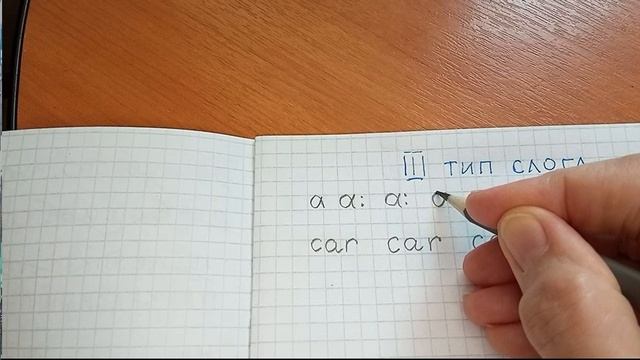 III тип слога
a ɑ: ɑ: ɑ
car car